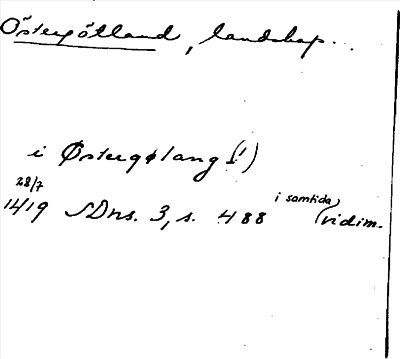 Östergötland, landskap.
i Østergøtang (!)
28/7
1419 SDns. 3, s. 488 i samtida vidim.